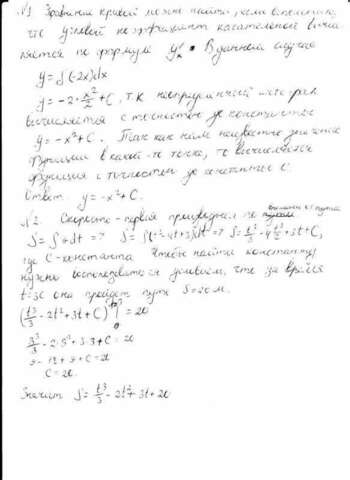 №1 Уравнение кривой можно найти, если вспомнить,
что угловой коэффициент касательной вычис
ляется по формуле y'ₓ. В данном случае
y=∫(-2x)dx
y=-2·x²/2+C, т.к неопределенный интеграл
вычисляется с точностью до константы
y=-x²+C. Так как нам неизвестно значение
функции в какой-то точке, то вычисляется
функция с точностью до константы C.
Ответ y=-x²+C.
№2. Скорость - первая производная по времени от пути
S=∫vdt => S=∫(t²-4t+3)dt => S=t³/3-4t²/2+3t+C,
где C-константа Чтобы найти константу
нужно воспользоваться условием, что за время
t=3c она пройдет путь S=20м.
(t³/3-2t²+3t+C)|³₀=20
3³/3-2·3²+3·3+C=20
9-18+9+C=20
C=20.
Значит S=t³/3-2t²+3t+20